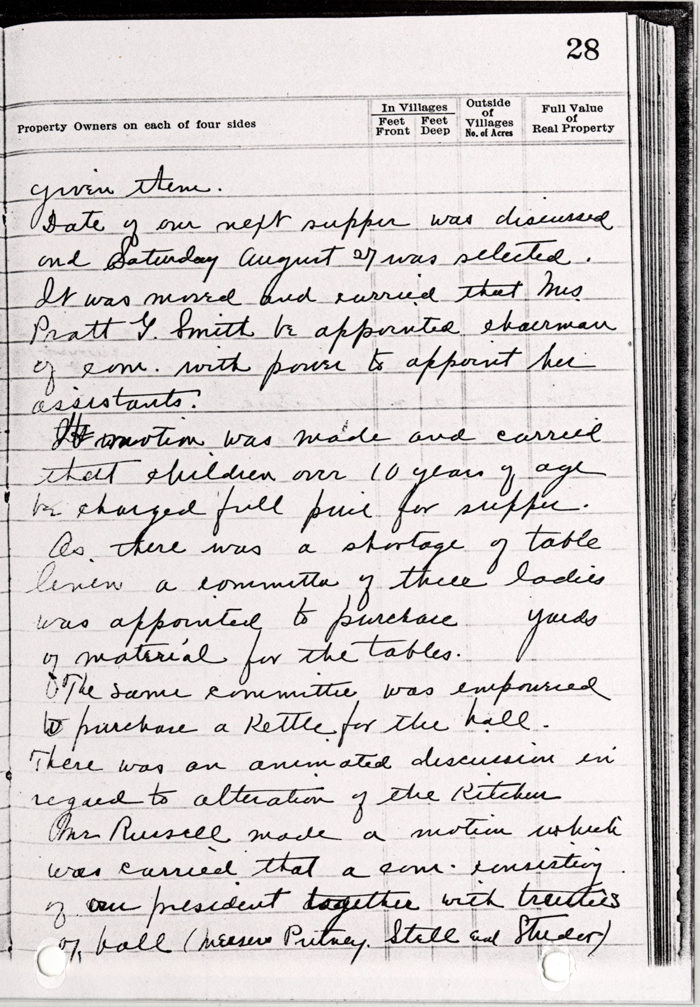 28
Property Owners on each of four sides
In Villages
Feet Front
Feet Deep
Outside of Villages No. of Acres
Full Value of Real Property
given them.
Date of our next supper was discussed
and Saturday August 27 was selected.
It was moved and carried that Mrs
Pratt G. Smith be appointed chairman
of com. with power to appoint her
assistants.
motion was made and carried
that children over 10 years of age
be charged full price for supper.
As there was a shortage of table
linen a committe of three ladies
was appointed to purchase yards
of material for the tables.
The same committee was empowered
to purchase a Kettle for the hall.
There was an animated discussion in
regard to alteration of the Kitchen
Mr Russell made a motion which
was carried that a com. consisting
of our president together with trustees
of hall (Messers Putney, Stell and Studer)